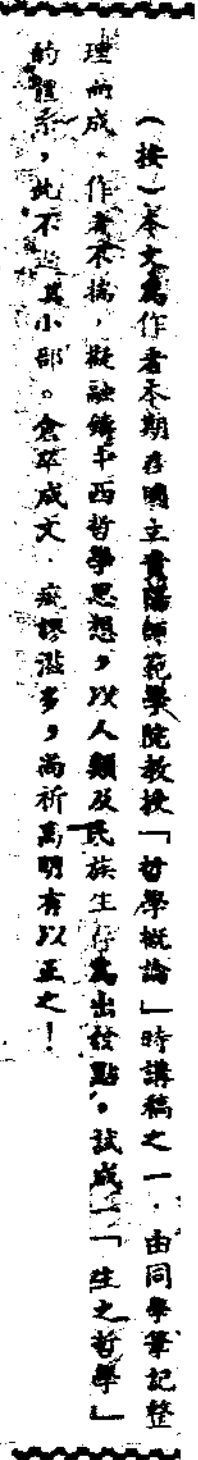 （按）本文為作者本期在國立貴陽師範學院教授「哲學概論」時講稿之一．由同學筆記整
理而成．作者不揣，擬融鑄中西哲學思想，以人類及民族生存為出發點，試成一「生之哲學」
的體系，此不過其小部。倉卒成文．疵謬滋多，尚祈高明有以正之！